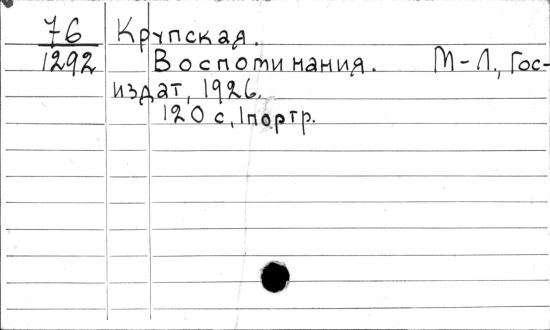 76 Крупская.
1292 Воспоминания. М-Л., Гос-
издат, 1926.
120 с, 1 портр.